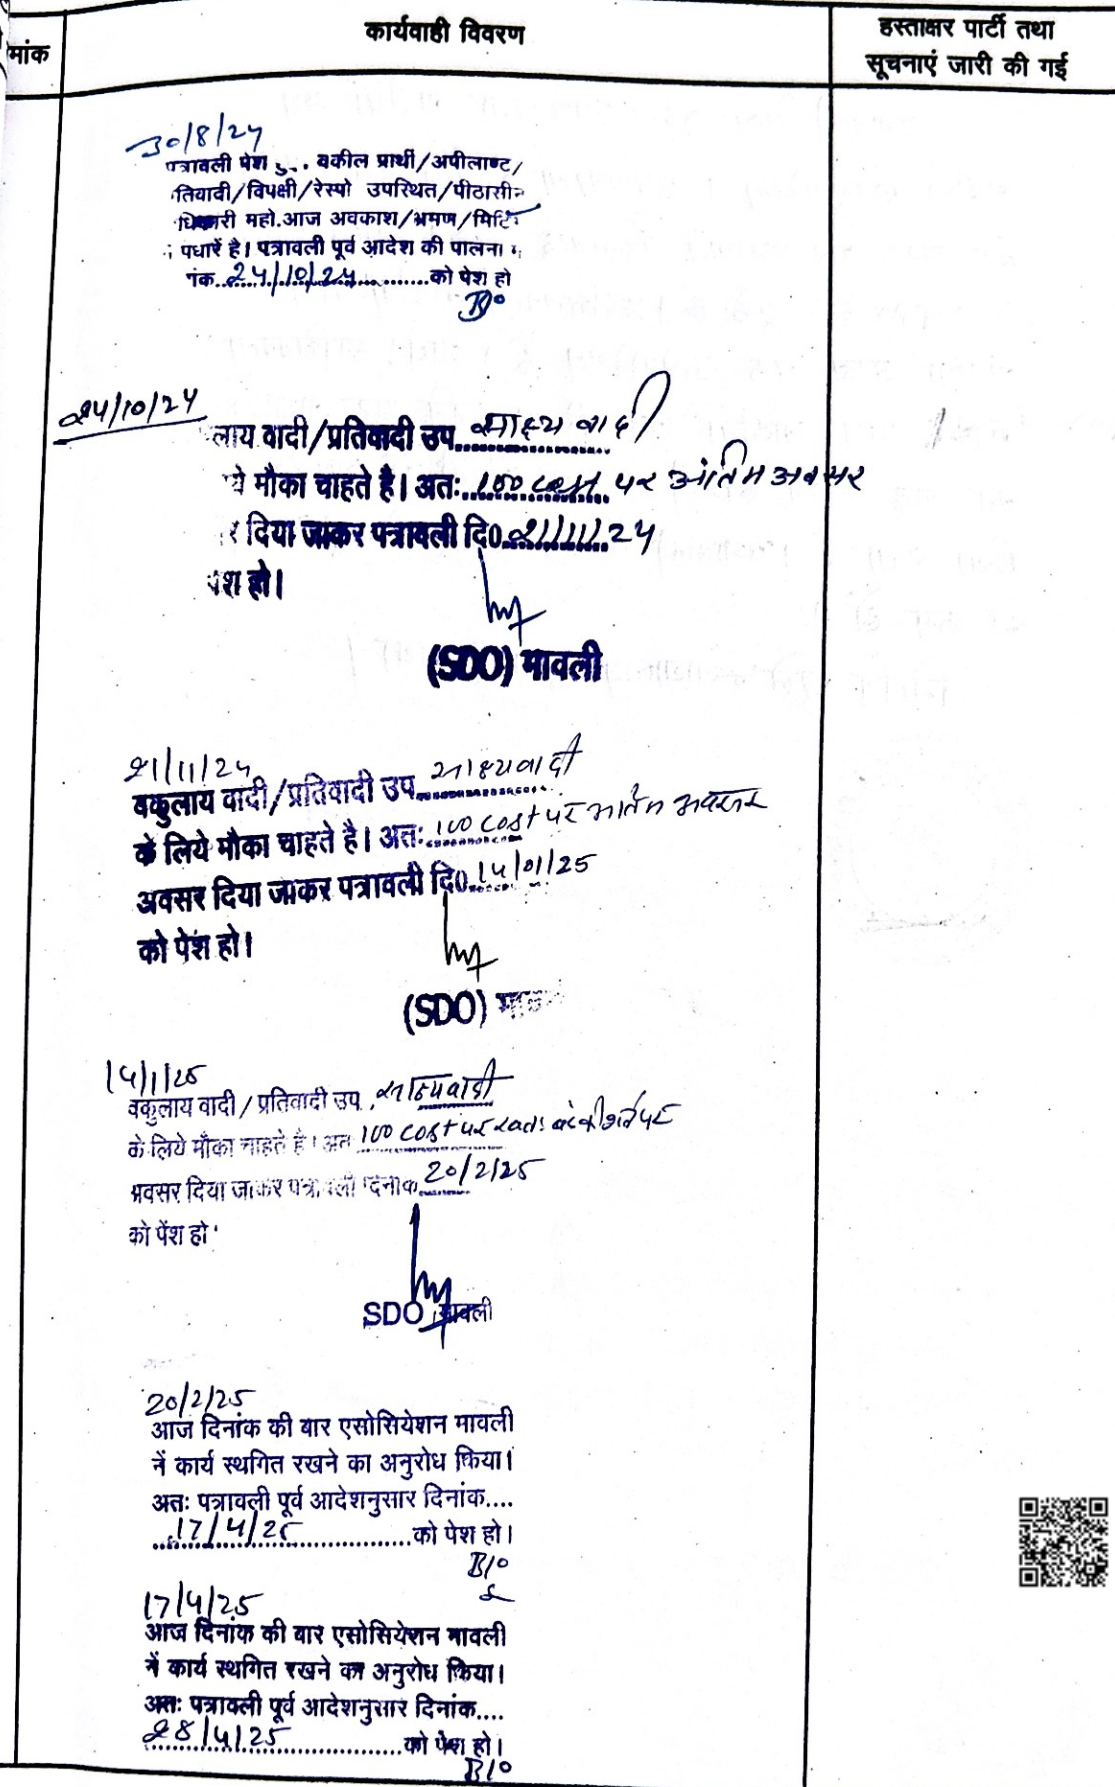 मांक
कार्यवाही विवरण
हस्ताक्षर पार्टी तथा
सूचनाएं जारी की गई
30/8/24
पत्रावली पेश हु... वकील प्रार्थी/अपीलाण्ट/
तिवादी/विपक्षी/रेस्पो उपस्थित/पीठासीन
धिकारी महो.आज अवकाश/भ्रमण/मिटिं
पधारें है। पत्रावली पूर्व आदेश की पालना
नंक..24/10/24..........को पेश हो
B/o
24/10/24
लाय वादी/प्रतिवादी उप..साक्ष्य वादी
ये मौका चाहते है। अतः 100 cost पर अंतिम अवसर
र दिया जाकर पत्रावली दि0.21/11/24
पेश हो।
(SDO) मावली
21/11/24
वकुलाय वादी/प्रतिवादी उप..साक्ष्यवादी
के लिये मौका चाहते है। अतः 100 cost पर अंतिम अवसर
अवसर दिया जाकर पत्रावली दि0.14/01/25
को पेश हो।
(SDO) माव
14/1/25
वकुलाय वादी / प्रतिवादी उप. साक्ष्यवादी
के लिये मौका चाहते है। अतः 100 cost पर स्वतः बंद की शर्त पर
अवसर दिया जाकर पत्रावली दिनांक 20/2/25
को पेंश हो
SDO मावली
20/2/25
आज दिनांक की बार एसोसियेशन मावली
नें कार्य स्थगित रखने का अनुरोध किया।
अतः पत्रावली पूर्व आदेशनुसार दिनांक....
..17/4/25..............को पेश हो।
B/o
17/4/25
आज दिनांक की बार एसोसियेशन मावली
नें कार्य स्थगित रखने का अनुरोध किया।
अतः पत्रावली पूर्व आदेशनुसार दिनांक....
28/4/25..............को पेश हो।
B/o